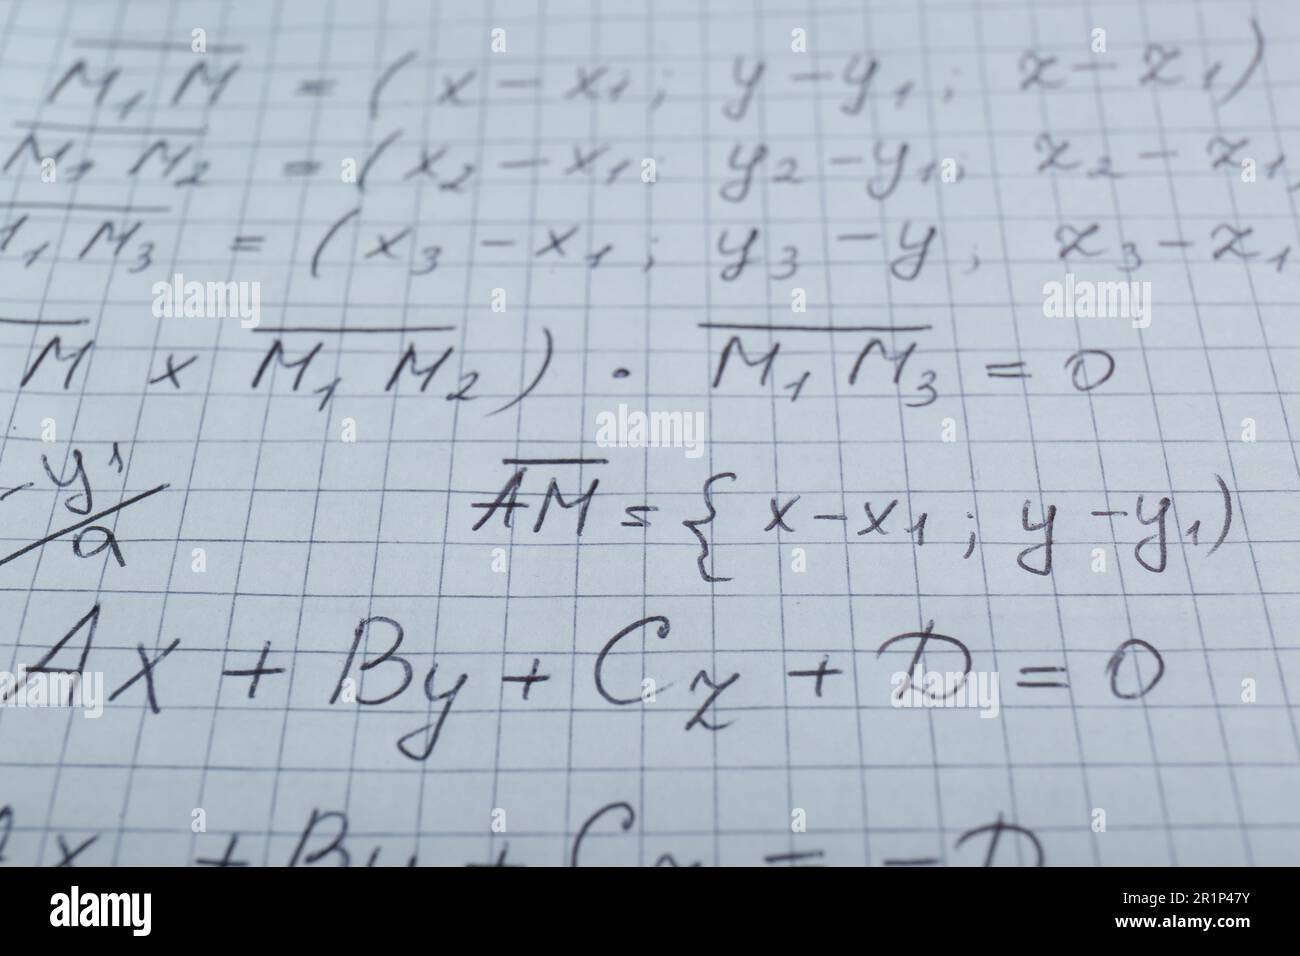 M₁M = (x − x₁; y − y₁; z − z₁)
M₁M₂ = (x₂ − x₁; y₂ − y₁; z₂ − z₁
₁M₃ = (x₃ − x₁; y₃ − y; z₃ − z₁
M × M₁M₂) · M₁M₃ = 0
−y¹/a AM = {x − x₁; y − y₁)
Ax + By + Cz + D = 0
Ax + By + Cz = −D
alamy
Image ID: 2R1P47Y
www.alamy.com